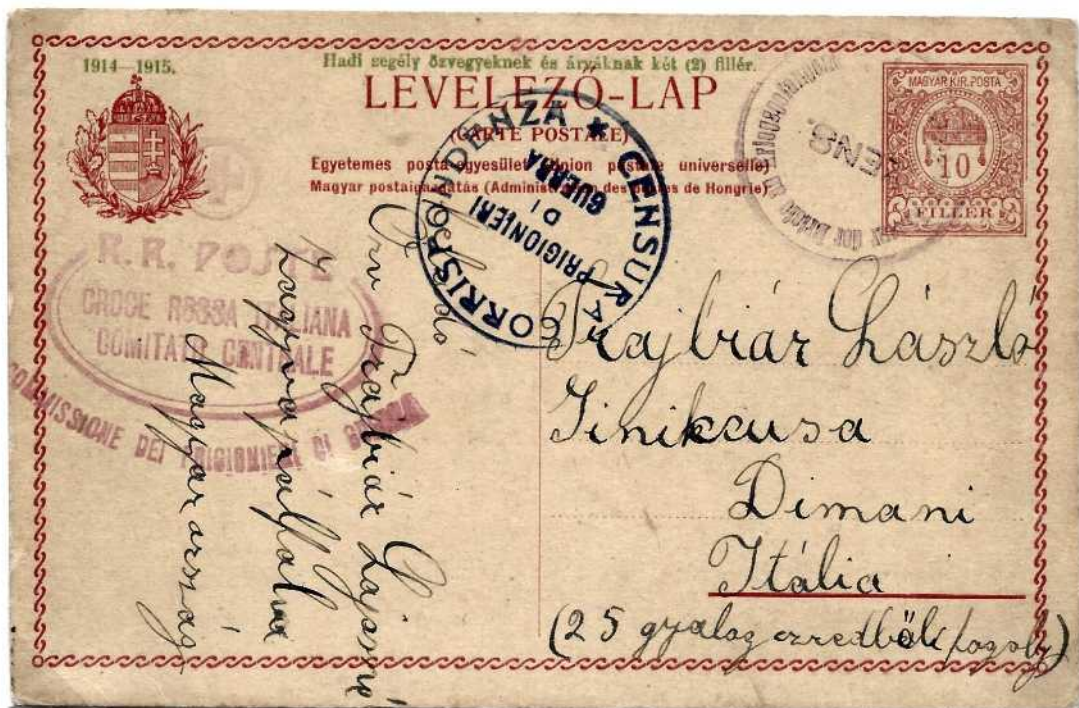 1914—1915.
Hadi segély özvegyeknek és árváknak két (2) fillér.
LEVELEZŐ-LAP
(CARTE POSTALE)
Egyetemes posta-egyesület (Union postale universelle)
Magyar postaigazgatás (Administration des postes de Hongrie)
MAGYAR KIR. POSTA
10
FILLÉR
CORRISPONDENZA * CENSURA
PRIGIONIERI
DI
GUERRA
R.R. POSTE
CROCE ROSSA ITALIANA
COMITATO CENTRALE
COMMISSIONE DEI PRIGIONIERI DI GUERRA
Trajbiár László
Sinikausa
Dimani
Itália
(25 gyalog ezredböli fogoly)
Feladó
Özv Trajbiár Lajosné
Zagyvapálfalva
Magyarország